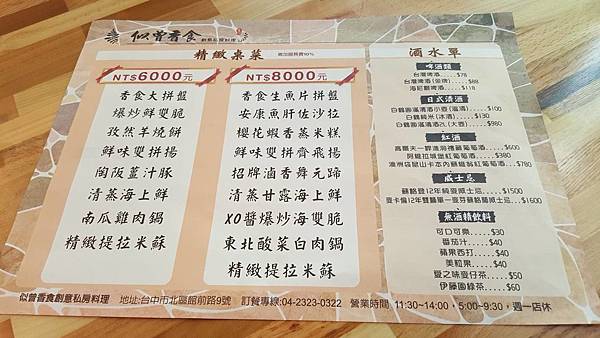 似曾香食 創意私房料理
精緻桌菜 需加服務費10%
NT$6000元
香食大拼盤
爆炒鮮雙脆
孜然羊燒餅
鮮味雙拼揚
陶阪薑汁豚
清蒸海上鮮
南瓜雞肉鍋
精緻提拉米蘇
NT$8000元
香食生魚片拼盤
安康魚肝佐沙拉
櫻花蝦香蒸米糕
鮮味雙拼齊飛揚
招牌滷香舜元蹄
清蒸甘露海上鮮
XO醬爆炒海雙脆
東北酸菜白肉鍋
精緻提拉米蘇
酒水單
啤酒類
台灣啤酒.....$78
台灣啤酒(金牌).....$88
海尼根啤酒.....$118
日式清酒
白鶴御滿清酒小壺(溫清).....$100
白鶴純米(冰酒).....$130
白鶴御滿清酒2L(大壺).....$980
紅酒
$600
阿根拉城堡紅葡萄酒.....$380
$780
威士忌
蘇格登12年純麥威士忌.....$1500
麥卡倫12年雙桶單一麥芽蘇格蘭威士忌...$1600
無酒精飲料
可口可樂.....$30
番茄汁.....$40
蘋果西打.....$40
美粒果.....$40
愛之味麥仔茶.....$50
伊藤園綠茶.....$60
似曾香食創意私房料理 地址:台中市北區館前路9號 訂餐專線:04-2323-0322 營業時間 11:30~14:00，5:00~9:30，週一店休